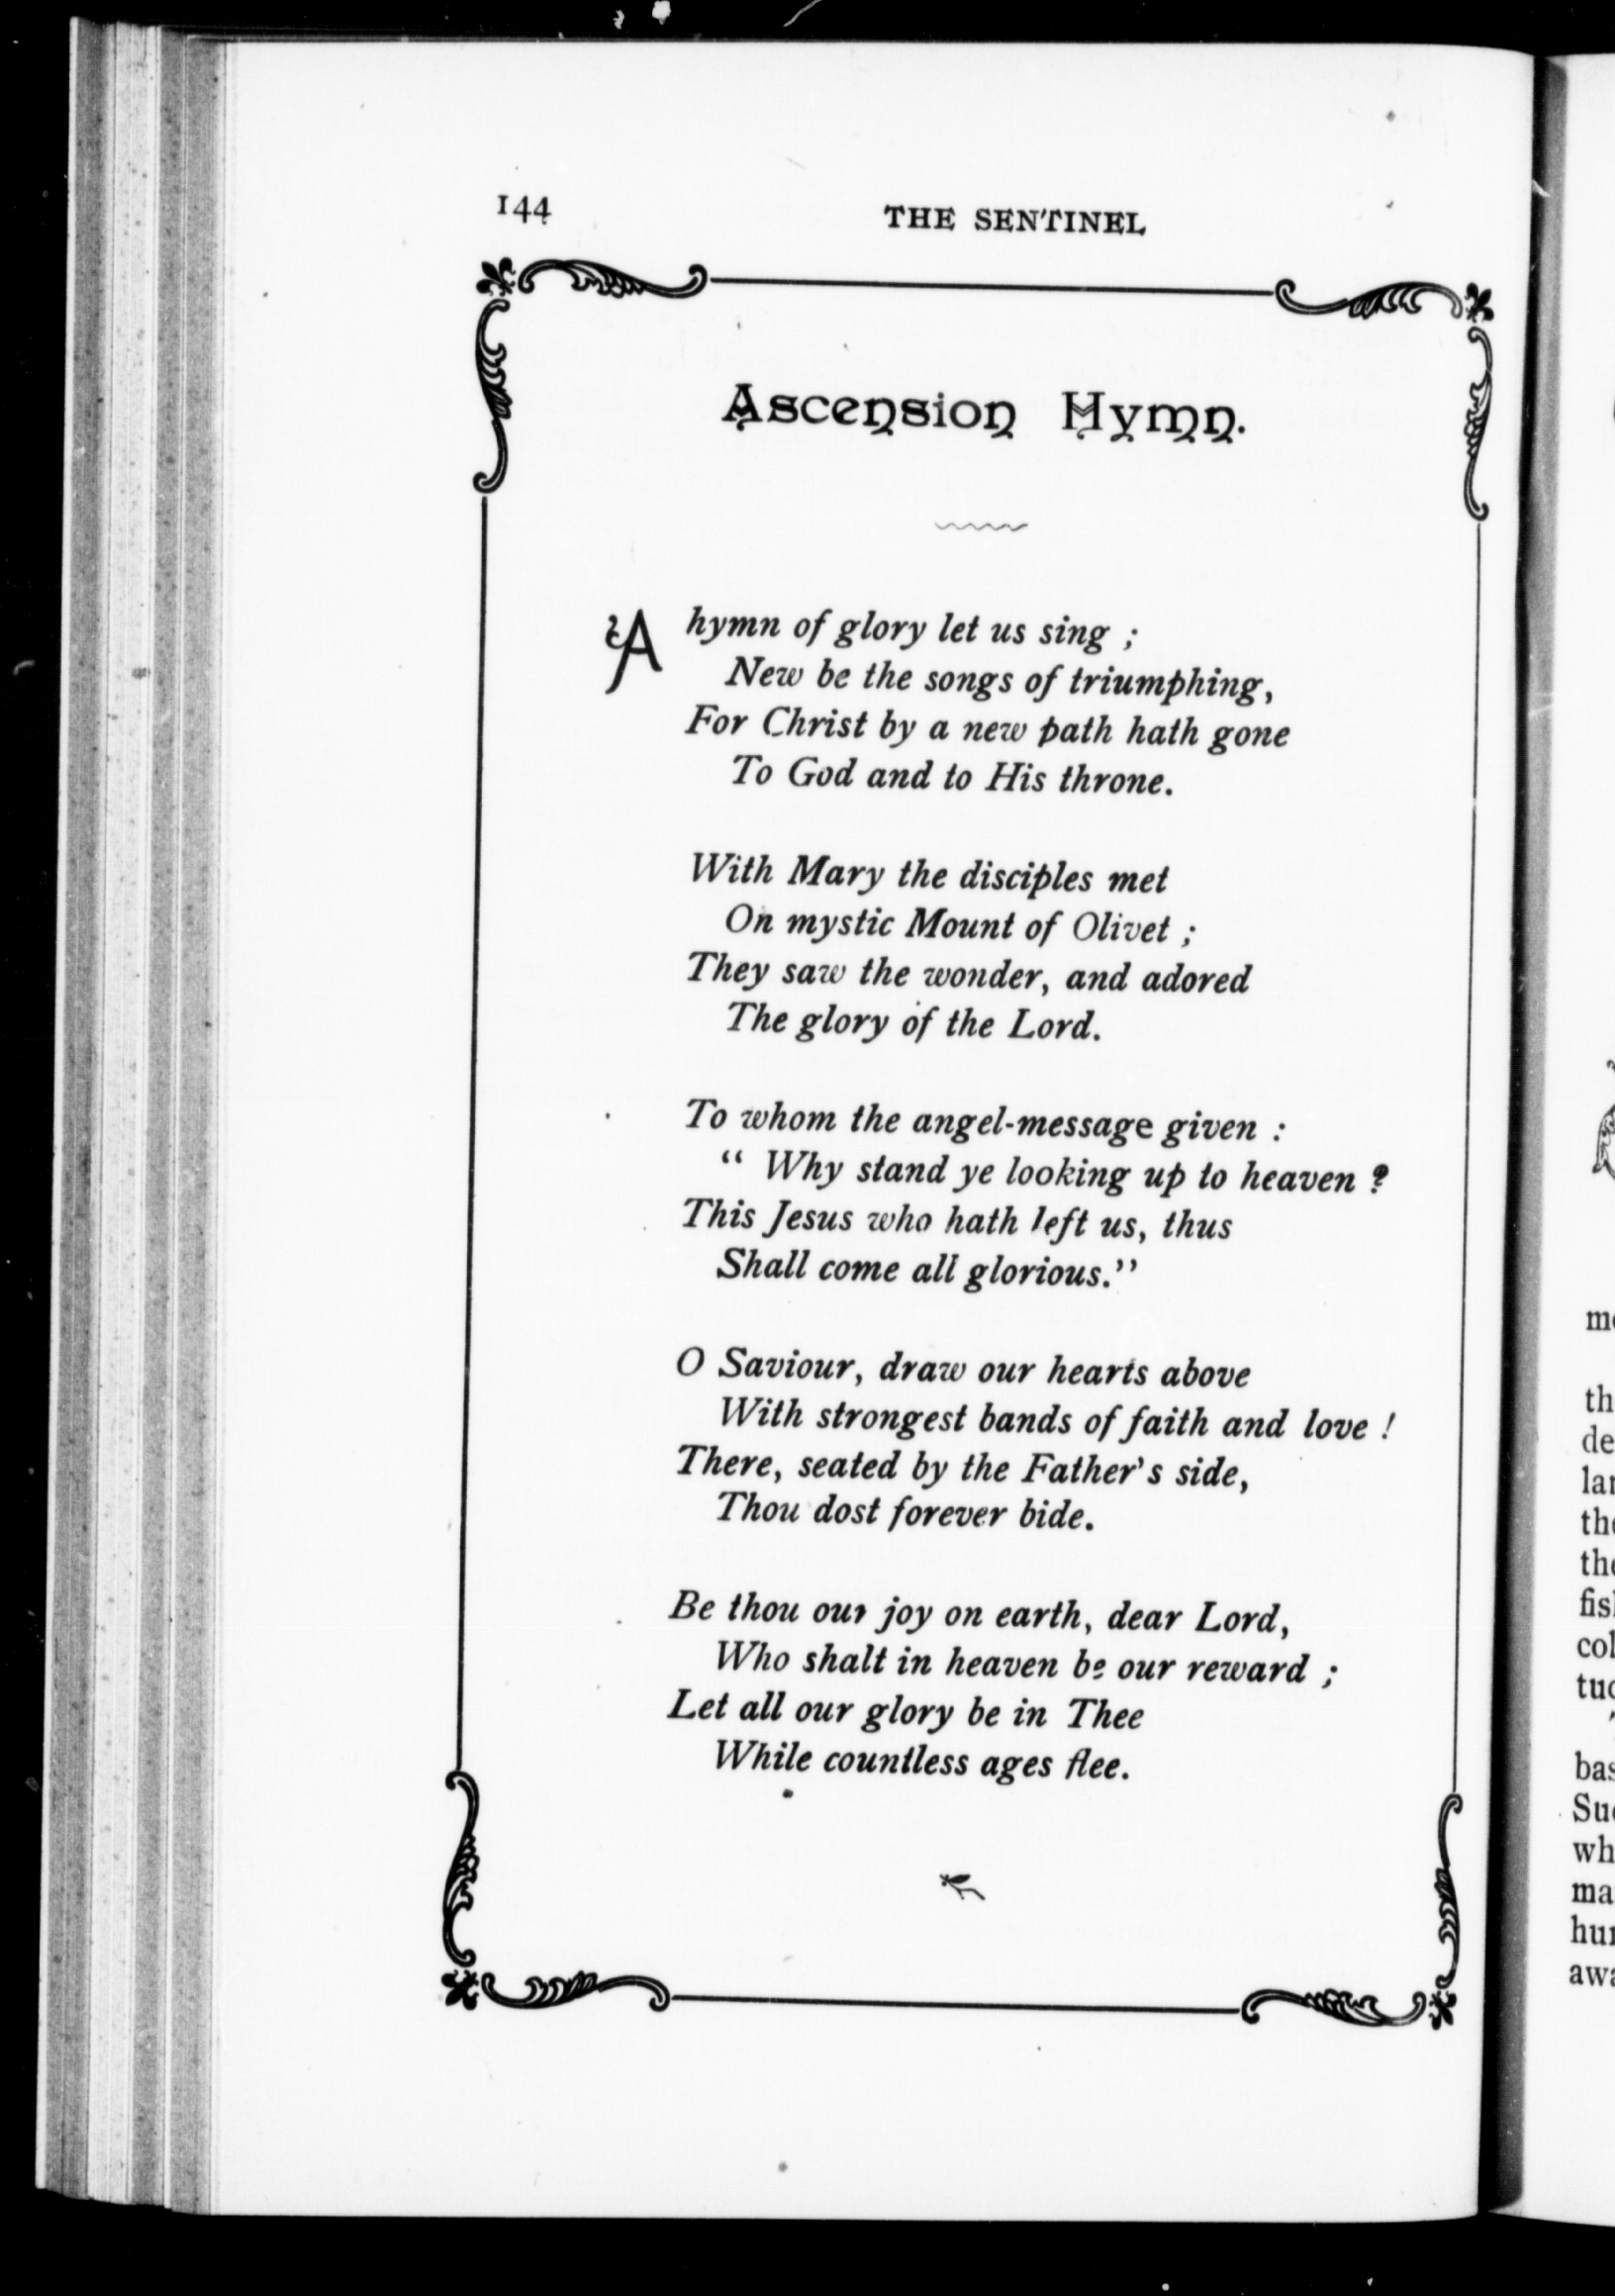 144
THE SENTINEL
Ascension Hymn.
A hymn of glory let us sing ;
New be the songs of triumphing,
For Christ by a new path hath gone
To God and to His throne.
With Mary the disciples met
On mystic Mount of Olivet ;
They saw the wonder, and adored
The glory of the Lord.
To whom the angel-message given :
“ Why stand ye looking up to heaven ?
This Jesus who hath left us, thus
Shall come all glorious.”
O Saviour, draw our hearts above
With strongest bands of faith and love !
There, seated by the Father's side,
Thou dost forever bide.
Be thou our joy on earth, dear Lord,
Who shalt in heaven be our reward ;
Let all our glory be in Thee
While countless ages flee.